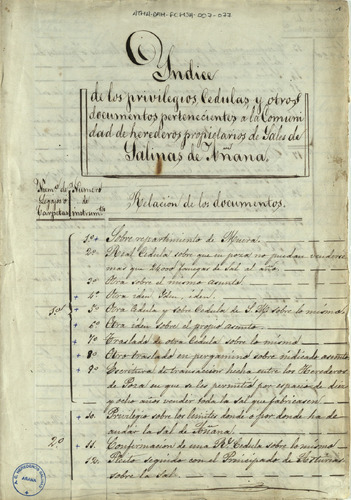 ATHA-DAH-FCMSA-007-077
Yndice
de los privilegios Cedulas y otros
documentos pertenecientes a la Comuni
dad de herederos propietarios de Sales de
Salinas de Añana.
Num.o de Número
Legajos o de
Carpetas instrum.tos
Relacion de los documentos.
1º Sobre repartimiento de Muera.
2º Real Cedula sobre que en poza no puedan venderse
mas que 24000 fanegas de Sal al año.
3º Otra sobre el mismo asunto.
4º Otra iden iden iden.
1º 5º Otra Cedula y sobre Cedula de S. M. sobre lo mismo.
6º Otra iden sobre el propio asunto.
7º Traslado de otra Cedula sobre lo mismo.
8º Otro traslado en pergamino sobre indicado asunto.
9º Escritura de transaccion hecha entre los Herederos
de Poza en que se les permitio por espacio de diez
y ocho años vender toda la sal que fabricasen.
10. Privilegio sobre los limites donde o por donde ha de
andar la sal de Añana.
2º 11. Confirmacion de una R.l Cedula sobre lo mismo.
12. Pleito seguido con el Principado de Asturias
sobre la sal.